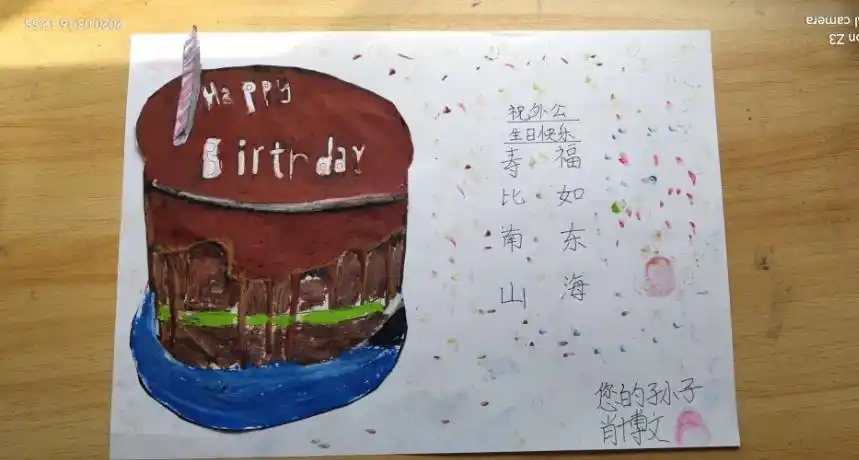 Happy
Birtrday
祝外公
生日快乐
福如东海
寿比南山
您的孙子
肖博文
2020.03.16 12:55
Z3
camera